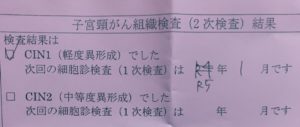 子宮頸がん組織検査(2次検査)結果
検査結果は
☑ CIN1(軽度異形成)でした
次回の細胞診検査(1次検査)は R4年 1月です
R5
□ CIN2(中等度異形成)でした
次回の細胞診検査(1次検査)は 年 月です